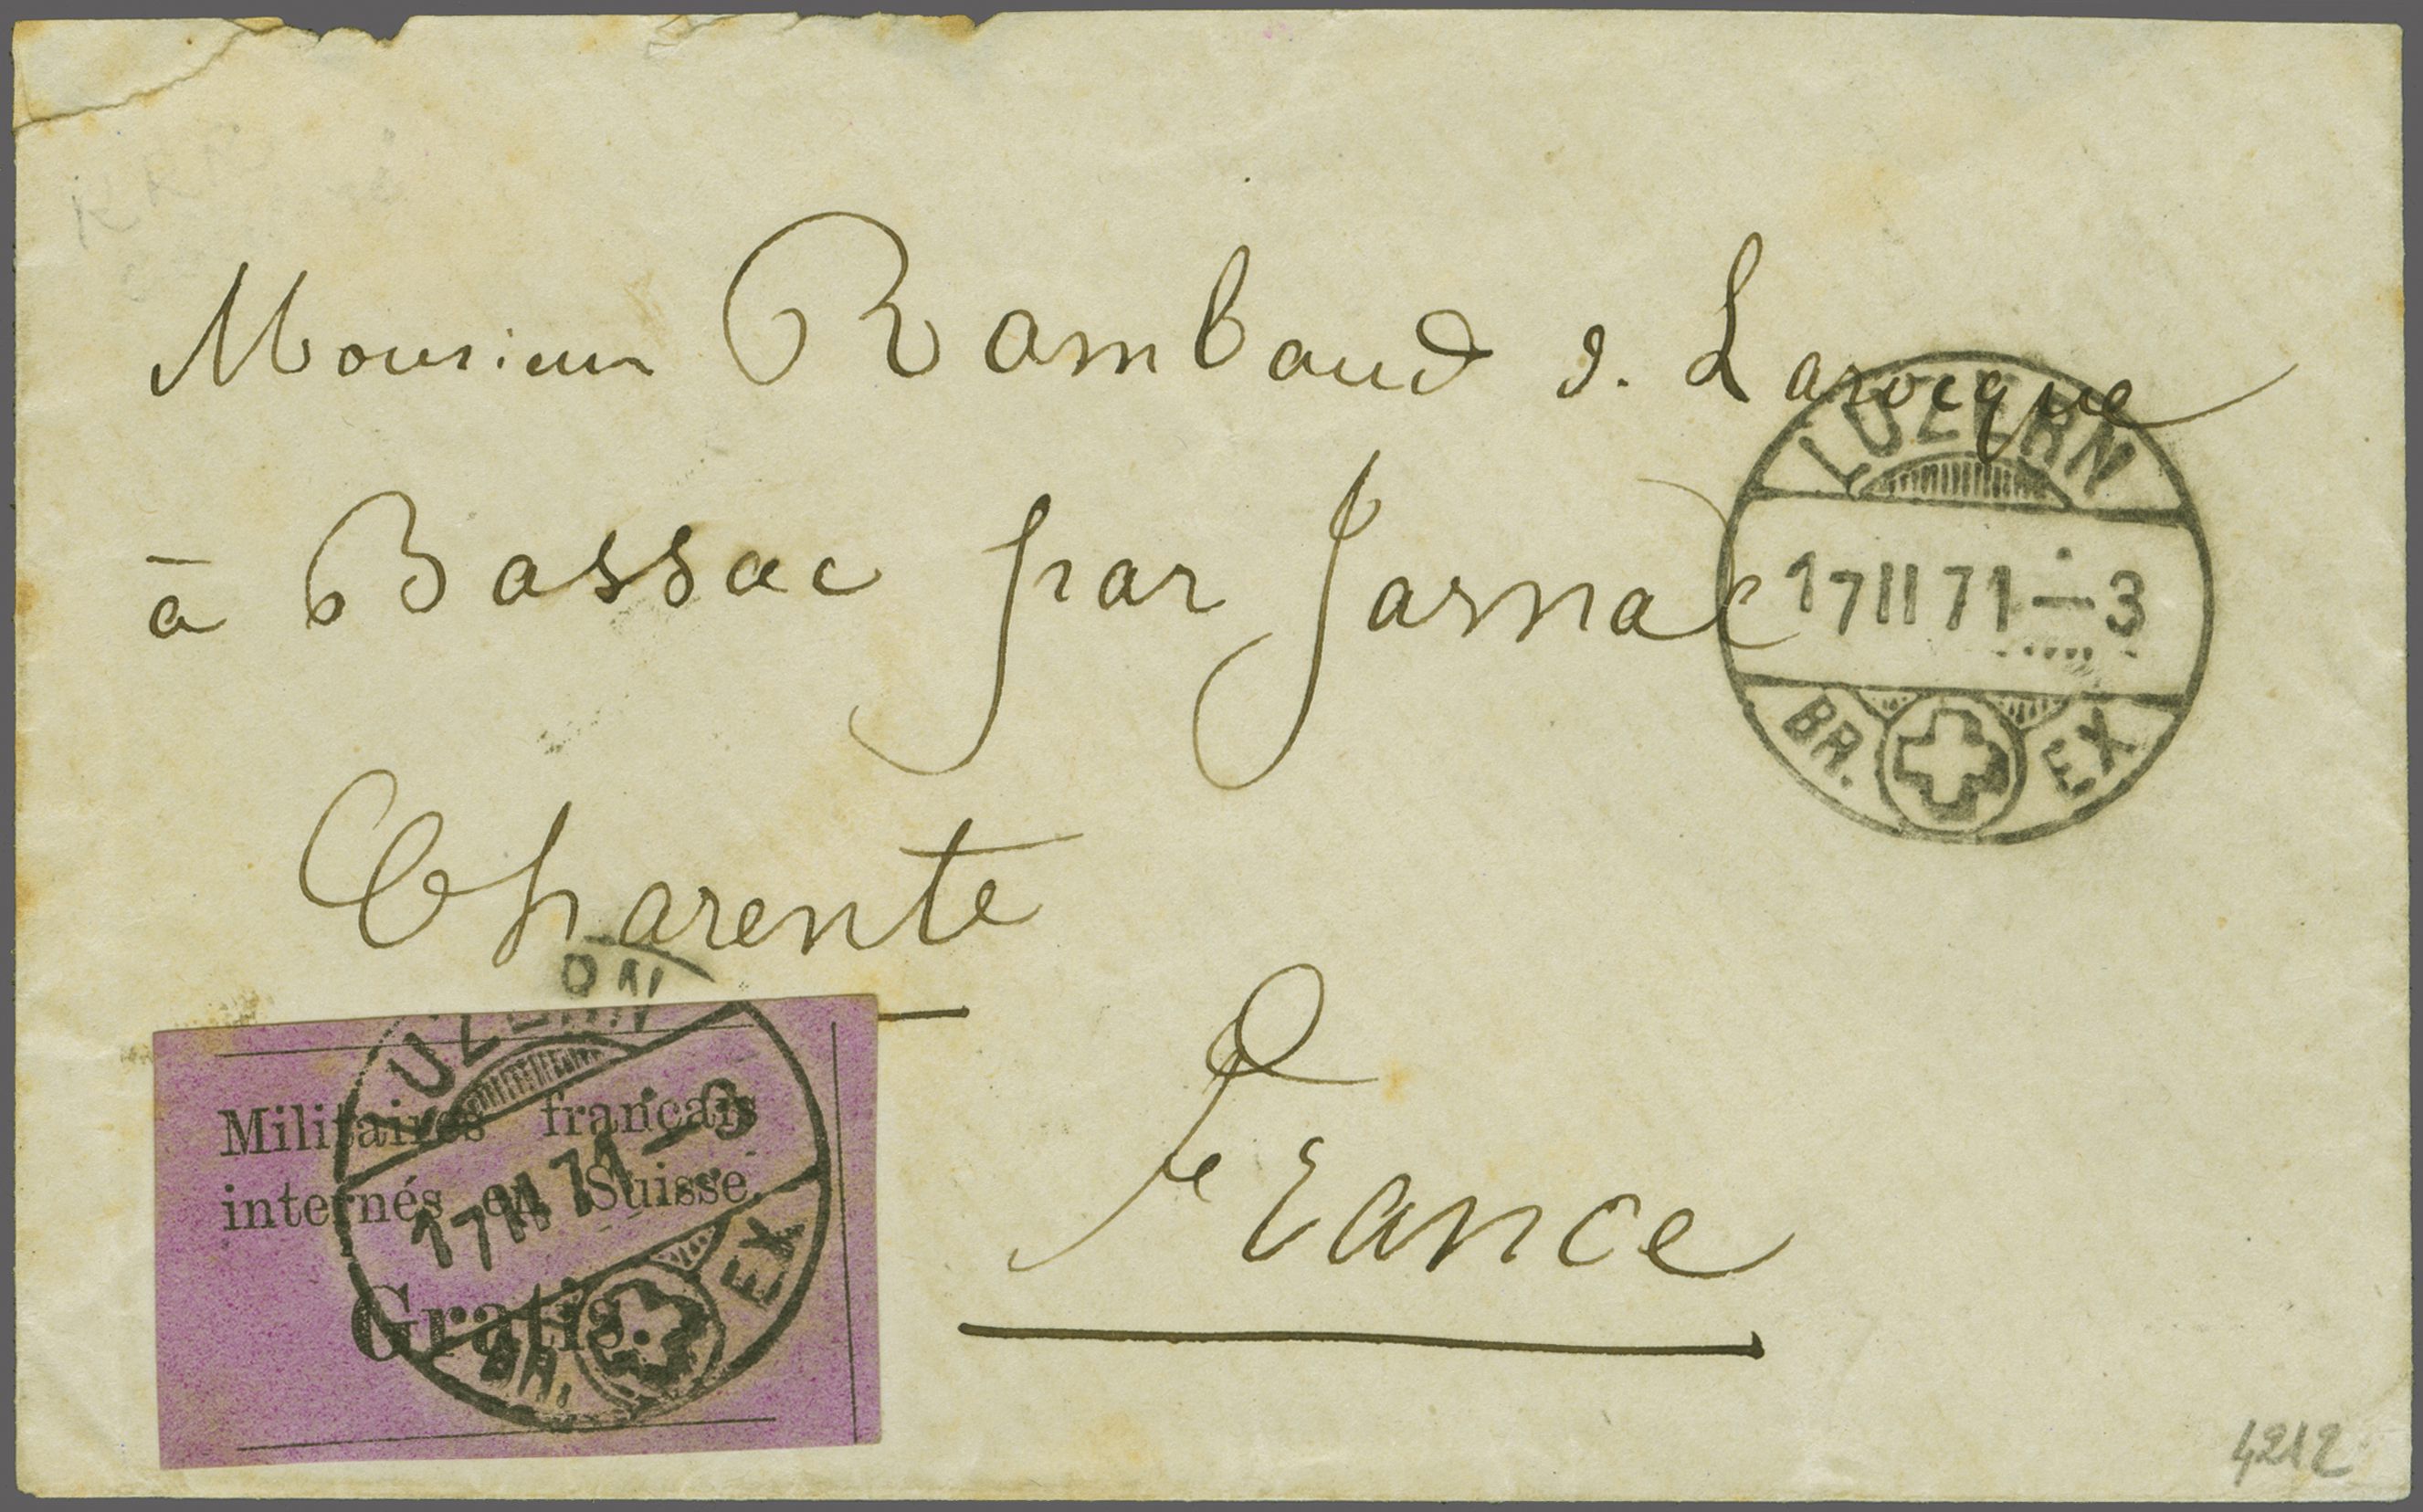 Monsieur Rambaud d. Larocque
à Bassac par Jarnac
Charente
France
LUZERN
17 II 71 – 3
BR. EX
UZERN
17 II 71 – 3
BR. EX
RN
Militaires français
internés en Suisse.
Gratis.
4212